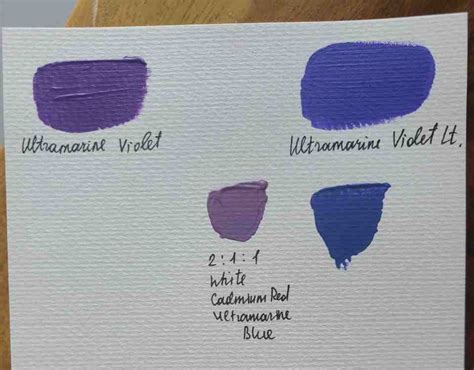 Ultramarine Violet
Ultramarine Violet Lt.
2:1:1
White
Cadmium Red
Ultramarine
Blue